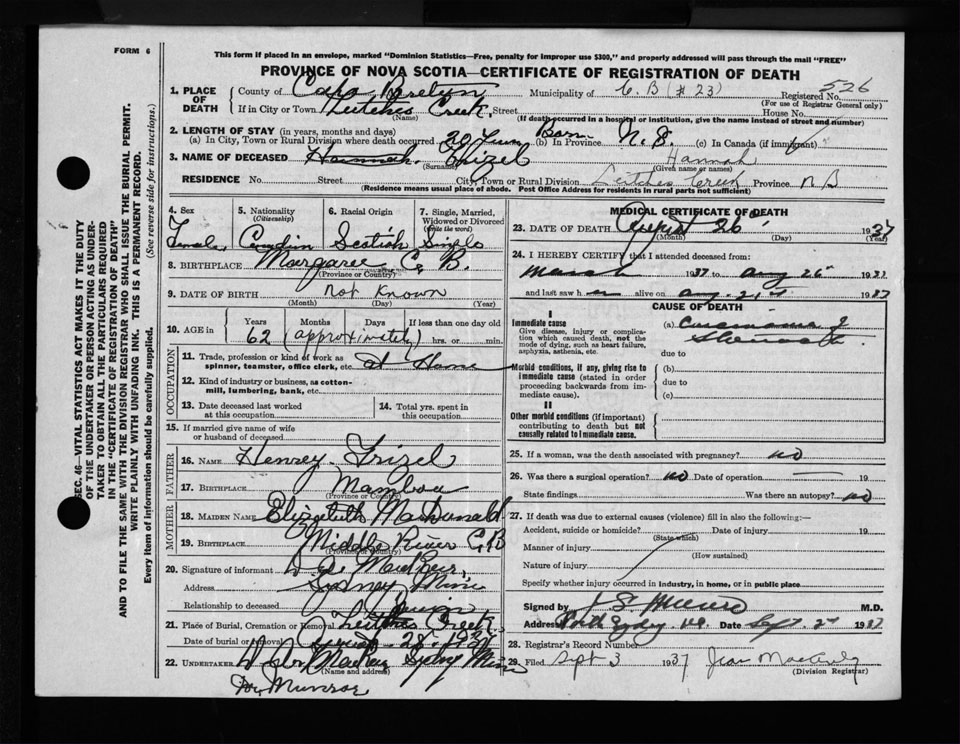 FORM 6
This form if placed in an envelope, marked "Dominion Statistics—Free, penalty for improper use $300," and properly addressed will pass through the mail "FREE"
PROVINCE OF NOVA SCOTIA—CERTIFICATE OF REGISTRATION OF DEATH
1. PLACE OF DEATH
County of Cape Breton Municipality of C.B (#23) Registered No. 526
(For use of Registrar General only)
If in City or Town Leitches Creek Street House No.
(Name) (If death occurred in a hospital or institution, give the name instead of street and number)
2. LENGTH OF STAY (in years, months and days)
(a) In City, Town or Rural Division where death occurred 30 (b) In Province Born N.S. (c) In Canada (if immigrant)
3. NAME OF DECEASED Hannah Frizel Hannah
(Surname) (Given name or names)
RESIDENCE No. Street City, Town or Rural Division Leitches Creek Province
(Residence means usual place of abode. Post Office Address for residents in rural parts not sufficient)
SEC. 46—VITAL STATISTICS ACT MAKES IT THE DUTY
OF THE UNDERTAKER OR PERSON ACTING AS UNDER-
TAKER TO OBTAIN ALL THE PARTICULARS REQUIRED
IN THE "CERTIFICATE OF REGISTRATION OF DEATH"
AND TO FILE THE SAME WITH THE DIVISION REGISTRAR WHO SHALL ISSUE THE BURIAL PERMIT.
WRITE PLAINLY WITH UNFADING INK. THIS IS A PERMANENT RECORD.
Every item of information should be carefully supplied. (See reverse side for instructions.)
4. Sex 5. Nationality (Citizenship) 6. Racial Origin 7. Single, Married, Widowed or Divorced (write the word)
Female Scotish Single
8. BIRTHPLACE Margaree C.B.
(Province or Country)
9. DATE OF BIRTH not Known
(Month) (Day) (Year)
10. AGE in Years Months Days If less than one day old
62 (approximately) hrs. or min.
OCCUPATION
11. Trade, profession or kind of work as spinner, teamster, office clerk, etc. at Home
12. Kind of industry or business, as cotton-mill, lumbering, bank, etc.
13. Date deceased last worked at this occupation
14. Total yrs. spent in this occupation
15. If married give name of wife or husband of deceased
FATHER
16. NAME Henrey Frizel
17. BIRTHPLACE Mambou
(Province or Country)
MOTHER
18. MAIDEN NAME Elizabeth MacDonald
19. BIRTHPLACE Middle River C.B
(Province or Country)
20. Signature of informant
Address Sydney Mines
Relationship to deceased
21. Place of Burial, Cremation or Removal Leitches Creek
Date of burial or removal August 28-1937
22. UNDERTAKER Sydney Mines
(Name and address)
Dr. Munroe
MEDICAL CERTIFICATE OF DEATH
23. DATE OF DEATH August 26 1937
(Month) (Day) (Year)
24. I HEREBY CERTIFY that I attended deceased from:
March 1937 to Aug 26 1937
and last saw h alive on Aug. 1937
CAUSE OF DEATH
I
Immediate cause
Give disease, injury or complication which caused death, not the mode of dying, such as heart failure, asphyxia, asthenia, etc.
(a) Carcinoma of Stomach
due to
Morbid conditions, if any, giving rise to immediate cause (stated in order proceeding backwards from immediate cause).
(b)
due to
(c)
II
Other morbid conditions (if important) contributing to death but not causally related to immediate cause.
25. If a woman, was the death associated with pregnancy? no
26. Was there a surgical operation? no Date of operation 19
State findings Was there an autopsy? no
27. If death was due to external causes (violence) fill in also the following:—
Accident, suicide or homicide? Date of injury 19
(State which)
Manner of injury
(How sustained)
Nature of injury
Specify whether injury occurred in industry, in home, or in public place
Signed by M.D.
Address North Sydney Date Sept. 1937
28. Registrar's Record Number
29. Filed Sept 3 1937 Jean
(Division Registrar)